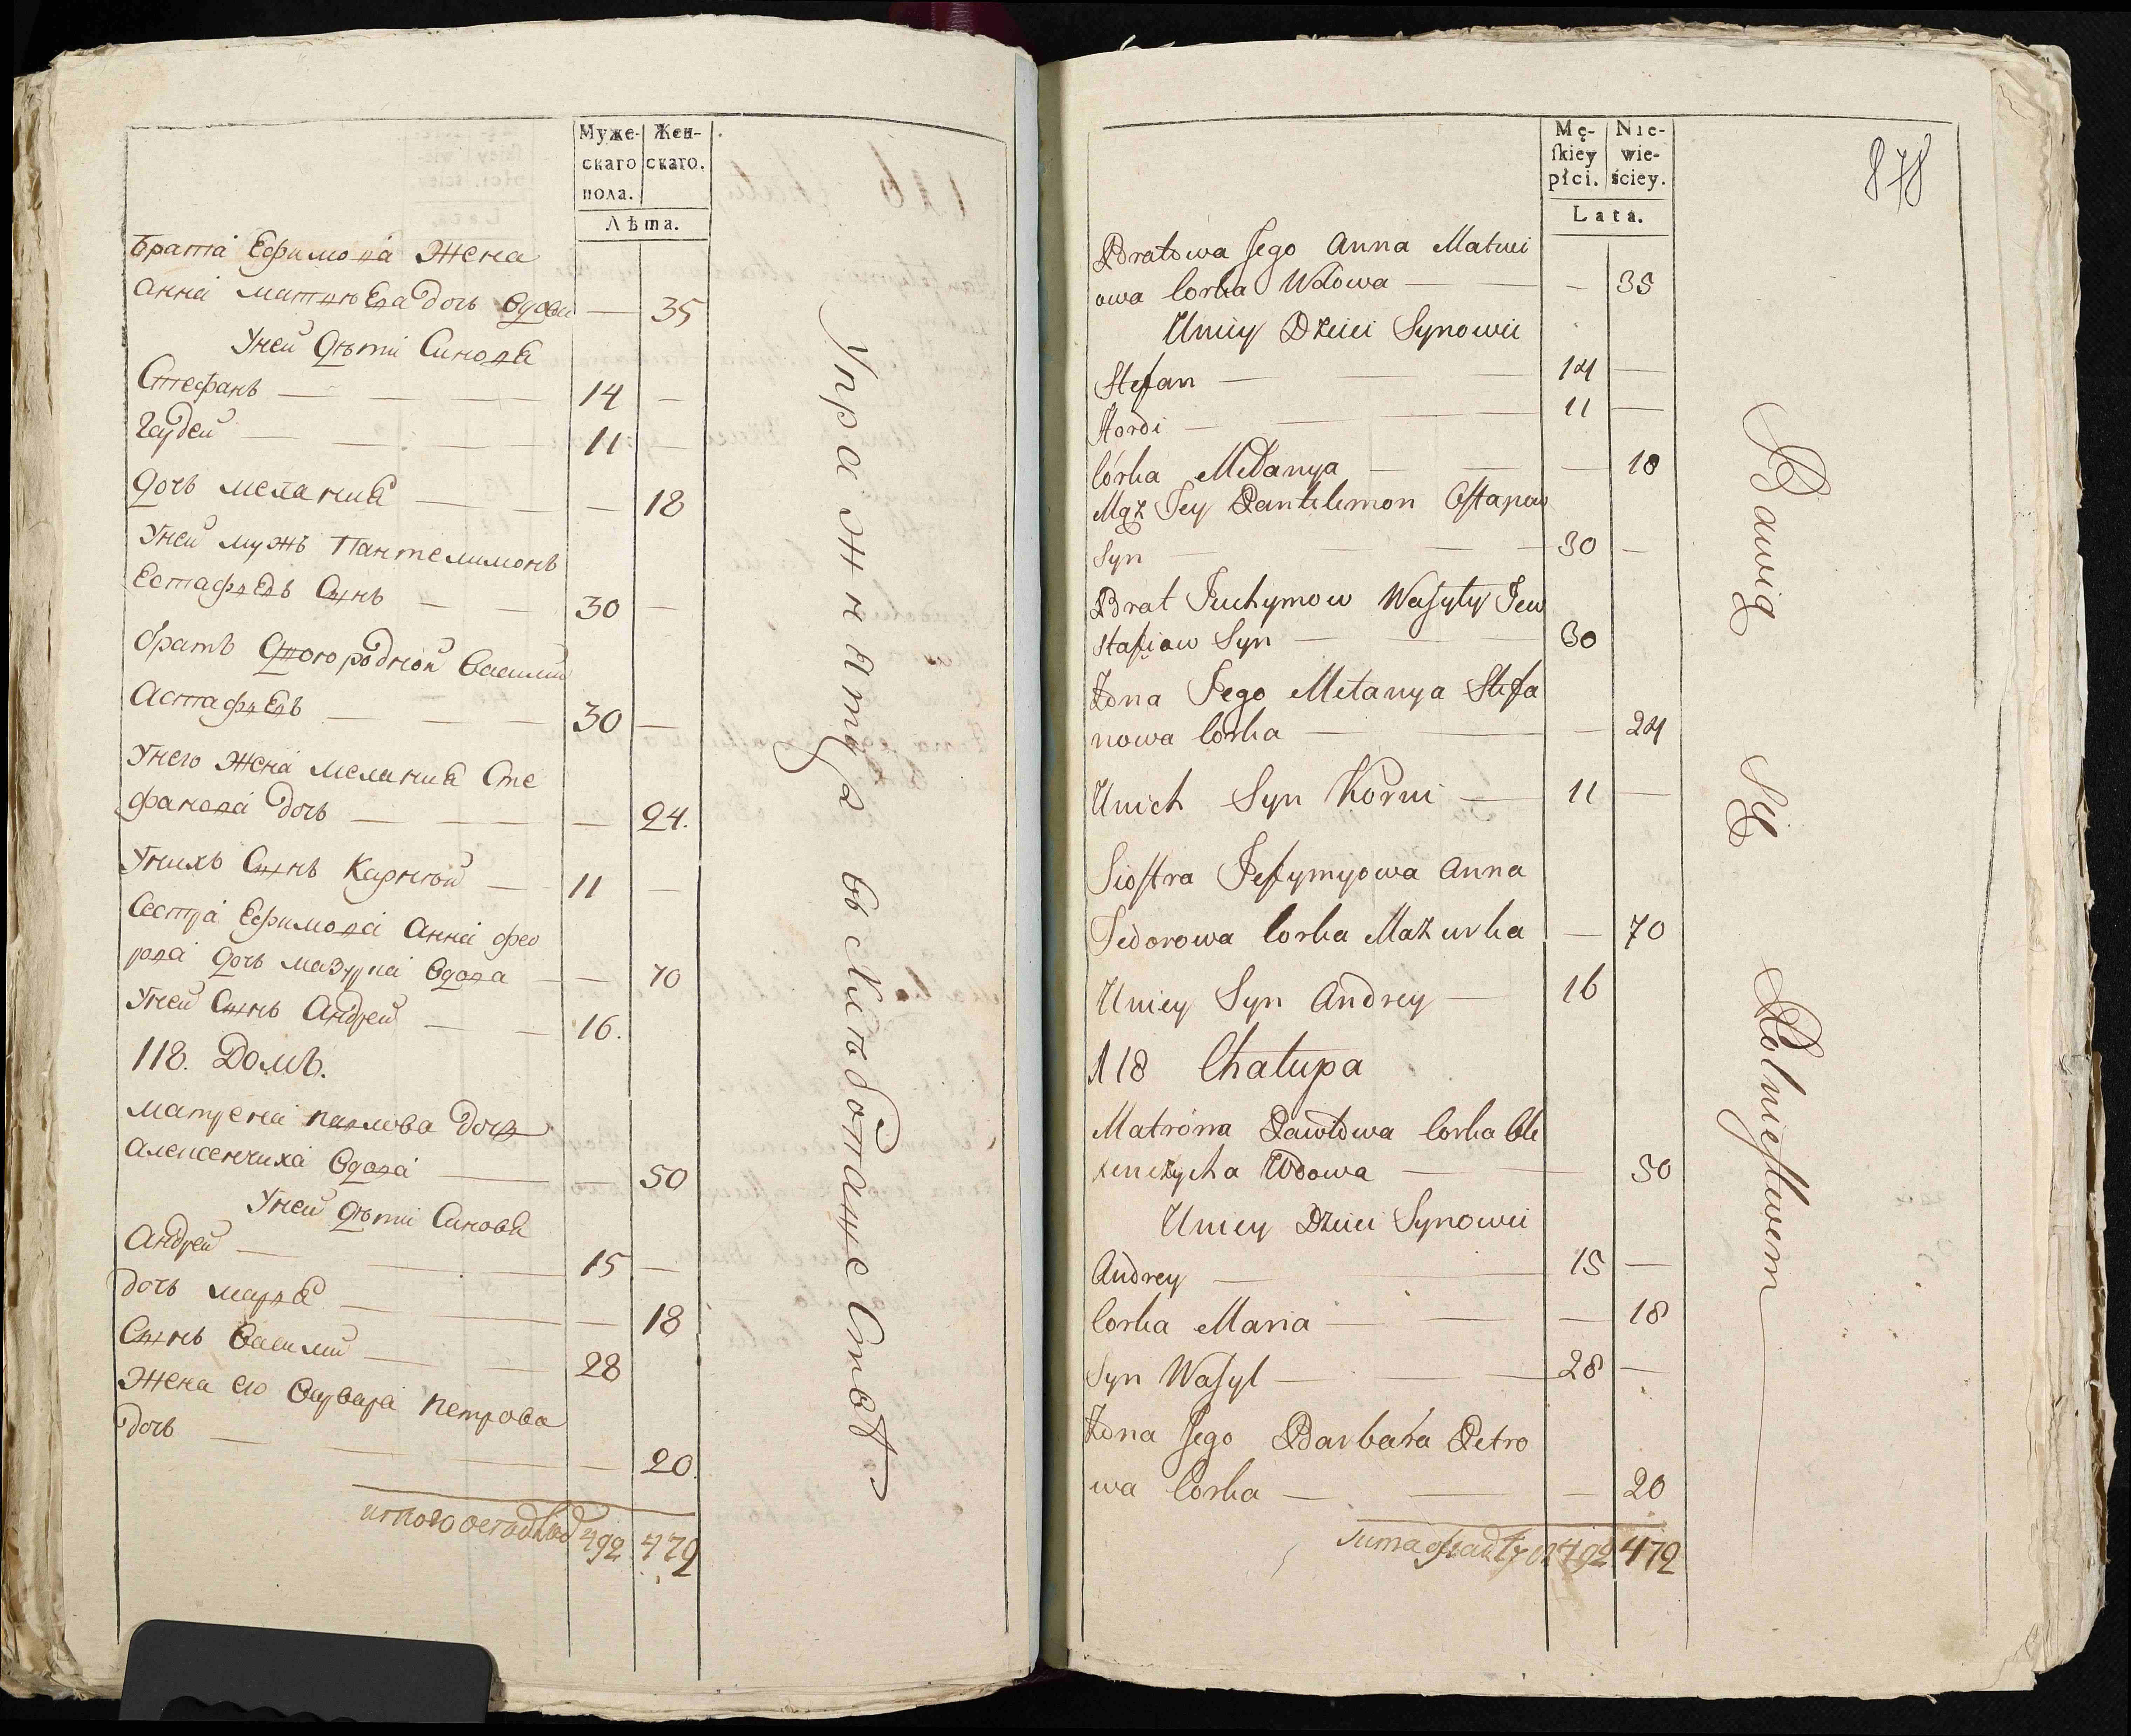 Муже- Жен-
скаго скаго.
пола.
Лѣта.
брата Ефимова Жена
анна матвѣева дочь вдова — 35
Уней дѣти Синове
Стефанъ — 14 —
Гаудей — 11 —
дочь мелания — — 18
Уней мужъ Пантелимонъ
Естафиевъ Сынъ — 30 —
братъ двоюродной василий
Астафиевъ — 30 —
Унего жена мелания Сте
фанова дочь — — 24.
Унихъ Сынъ Карней — 11 —
Сестра Ефимова анна фео
рова дочь мазурка вдова — — 70
Уней Сынъ Андрей — 16.
118. Домъ.
матрена павлова дочь
алексенчиха вдова — — 50
Уней дѣти Синове
Андрей — 15 —
дочь маря — — 18
Сынъ Василий — 28
жена его варвара петрова
дочь — — 20.
итого 492 472
Упражнятца въ хлѣбопашествѣ
878
Mę- Nie-
ſkiey wie-
płci. ściey.
Lata.
Bratowa Jego Anna Matwi
owa Corka Wdowa — — 35
Uniey Dzieci Synowie
Stefan — 14 —
Hordi — 11 —
Córka Mełanya — — 18
Mąż Jey Pantelemon Oſtapow
Syn — 30 —
Brat Juchymow Waſyly Jew
stafiow Syn — 30
Żona Jego Mełanya Stefa
nowa Corka — — 24
Unich Syn Korni — 11 —
Sioſtra Jefymyowa Anna
Fedorowa Corka Mazurka — 70
Uniey Syn Andrey — 16
118 Chałupa
Matróna Pawłowa Corka Ole
xenczycha Wdowa — 50
Uniey Dzieci Synowie
Andrey — 15 —
Corka Maria — — 18
Syn Waſyl — 28 —
Żona Jego Barbara Petro
wa Corka — — 20
Suma 492 472
Bawią Się Rolnieſtwem